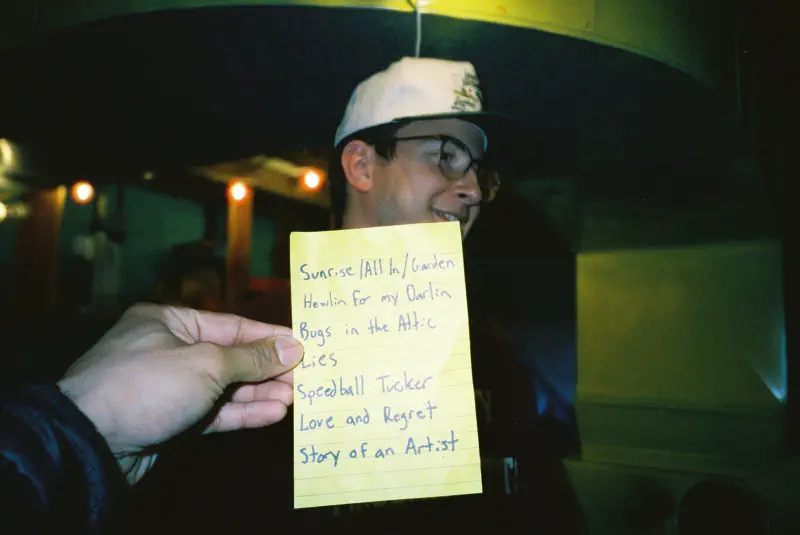 Sunrise/All In/Garden
Howlin for my Darlin
Bugs in the Attic
Lies
Speedball Tucker
Love and Regret
Story of an Artist